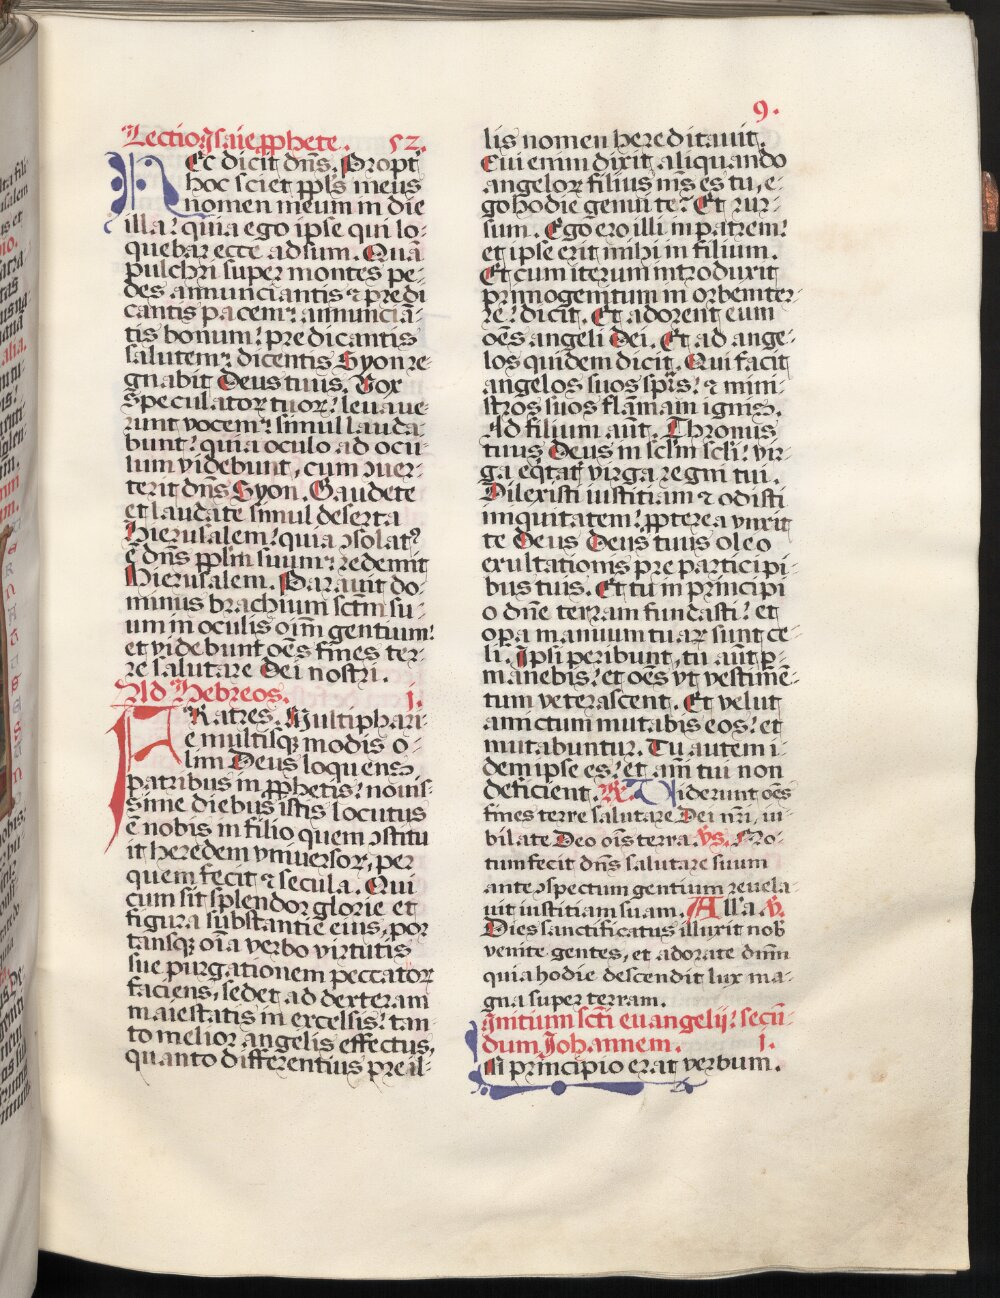 9.
Lectio Isaie ꝓphete. 52.
HEc dicit dñs. Propt̃
hoc sciet ppl̃s meus
nomen meum in die
illa: quia ego ipse qui lo-
quebar ecce adsum. Quã
pulchri super montes pe-
des annunciantis ⁊ predi
cantis pacem: annunciã-
tis bonum: predicantis
salutem: dicentis Syon re-
gnabit Deus tuus. Vox
speculatoꝝ tuoꝝ: leuaue-
runt vocem: simul lauda-
bunt: quia oculo ad ocu-
lum videbunt, cum ↄuer-
terit dñs Syon. Gaudete
et laudate simul deserta
Hierusalem: quia ↄsolatꝰ
ẽ dñs ppl̃m suum: redemit
Hierusalem. Parauit do-
minus brachium sctm̃ su-
um in oculis oĩm gentium:
et videbunt oẽs fines ter-
re salutare Dei nostri.
Ad Hebreos. 1.
FRatres. Multiphari-
e multisqꝫ modis o-
lim Deus loquens
patribus in ꝓphetis: nouis-
sime diebus istis locutus
ẽ nobis in filio quem ↄstitu
it heredem vniuersoꝝ, per
quem fecit ⁊ secula. Qui
cum sit splendor glorie et
figura substantie eius, por
tansqꝫ oĩa verbo virtutis
sue purgationem peccatoꝝ
faciens, sedet ad dexteram
maiestatis in excelsis: tan
to melior angelis effectus,
quanto differentius pre il-
lis nomen hereditauit.
Cui enim dixit aliquando
angeloꝝ filius mẽs es tu, e-
go hodie genui te: Et rur-
sum. Ego ero illi in patrem:
et ipse erit mihi in filium.
Et cum iterum introduxit
primogenitum in orbem ter-
re: dicit. Et adorent eum
oẽs angeli Dei. Et ad ange-
los quidem dicit. Qui facit
angelos suos sp̃rs: ⁊ mini-
stros suos flãmam ignis.
Ad filium aũt. Thronus
tuus Deus in sclm̃ scl̃i: vir-
ga eq̃tatꝭ virga regni tui.
Dilexisti iustitiam ⁊ odisti
iniquitatem: ꝓpterea vnxit
te Deus Deus tuus oleo
exultationis pre participi-
bus tuis. Et tu in principi
o dñe terram fundasti: et
oꝑa manuum tuaꝝ sunt ce-
li. Ipsi peribunt, tu aũt ꝑ-
manebis: et oẽs vt vestimẽ-
tum veterascent. Et velut
amictum mutabis eos: et
mutabuntur. Tu autem i-
dem ipse es: et ãni tui non
deficient. R. Viderunt oẽs
fines terre salutare Dei nr̃i, iu-
bilate Deo oĩs terra. Vs. No-
tum fecit dñs salutare suum
ante ↄspectum gentium reuela-
uit iustitiam suam. All'a. V.
Dies sanctificatus illuxit nob̃
venite gentes, et adorate dñm
quia hodie descendit lux ma-
gna super terram.
Initium sct̃i euangelij: secũ-
dum Iohannem. 1.
IN principio erat verbum.